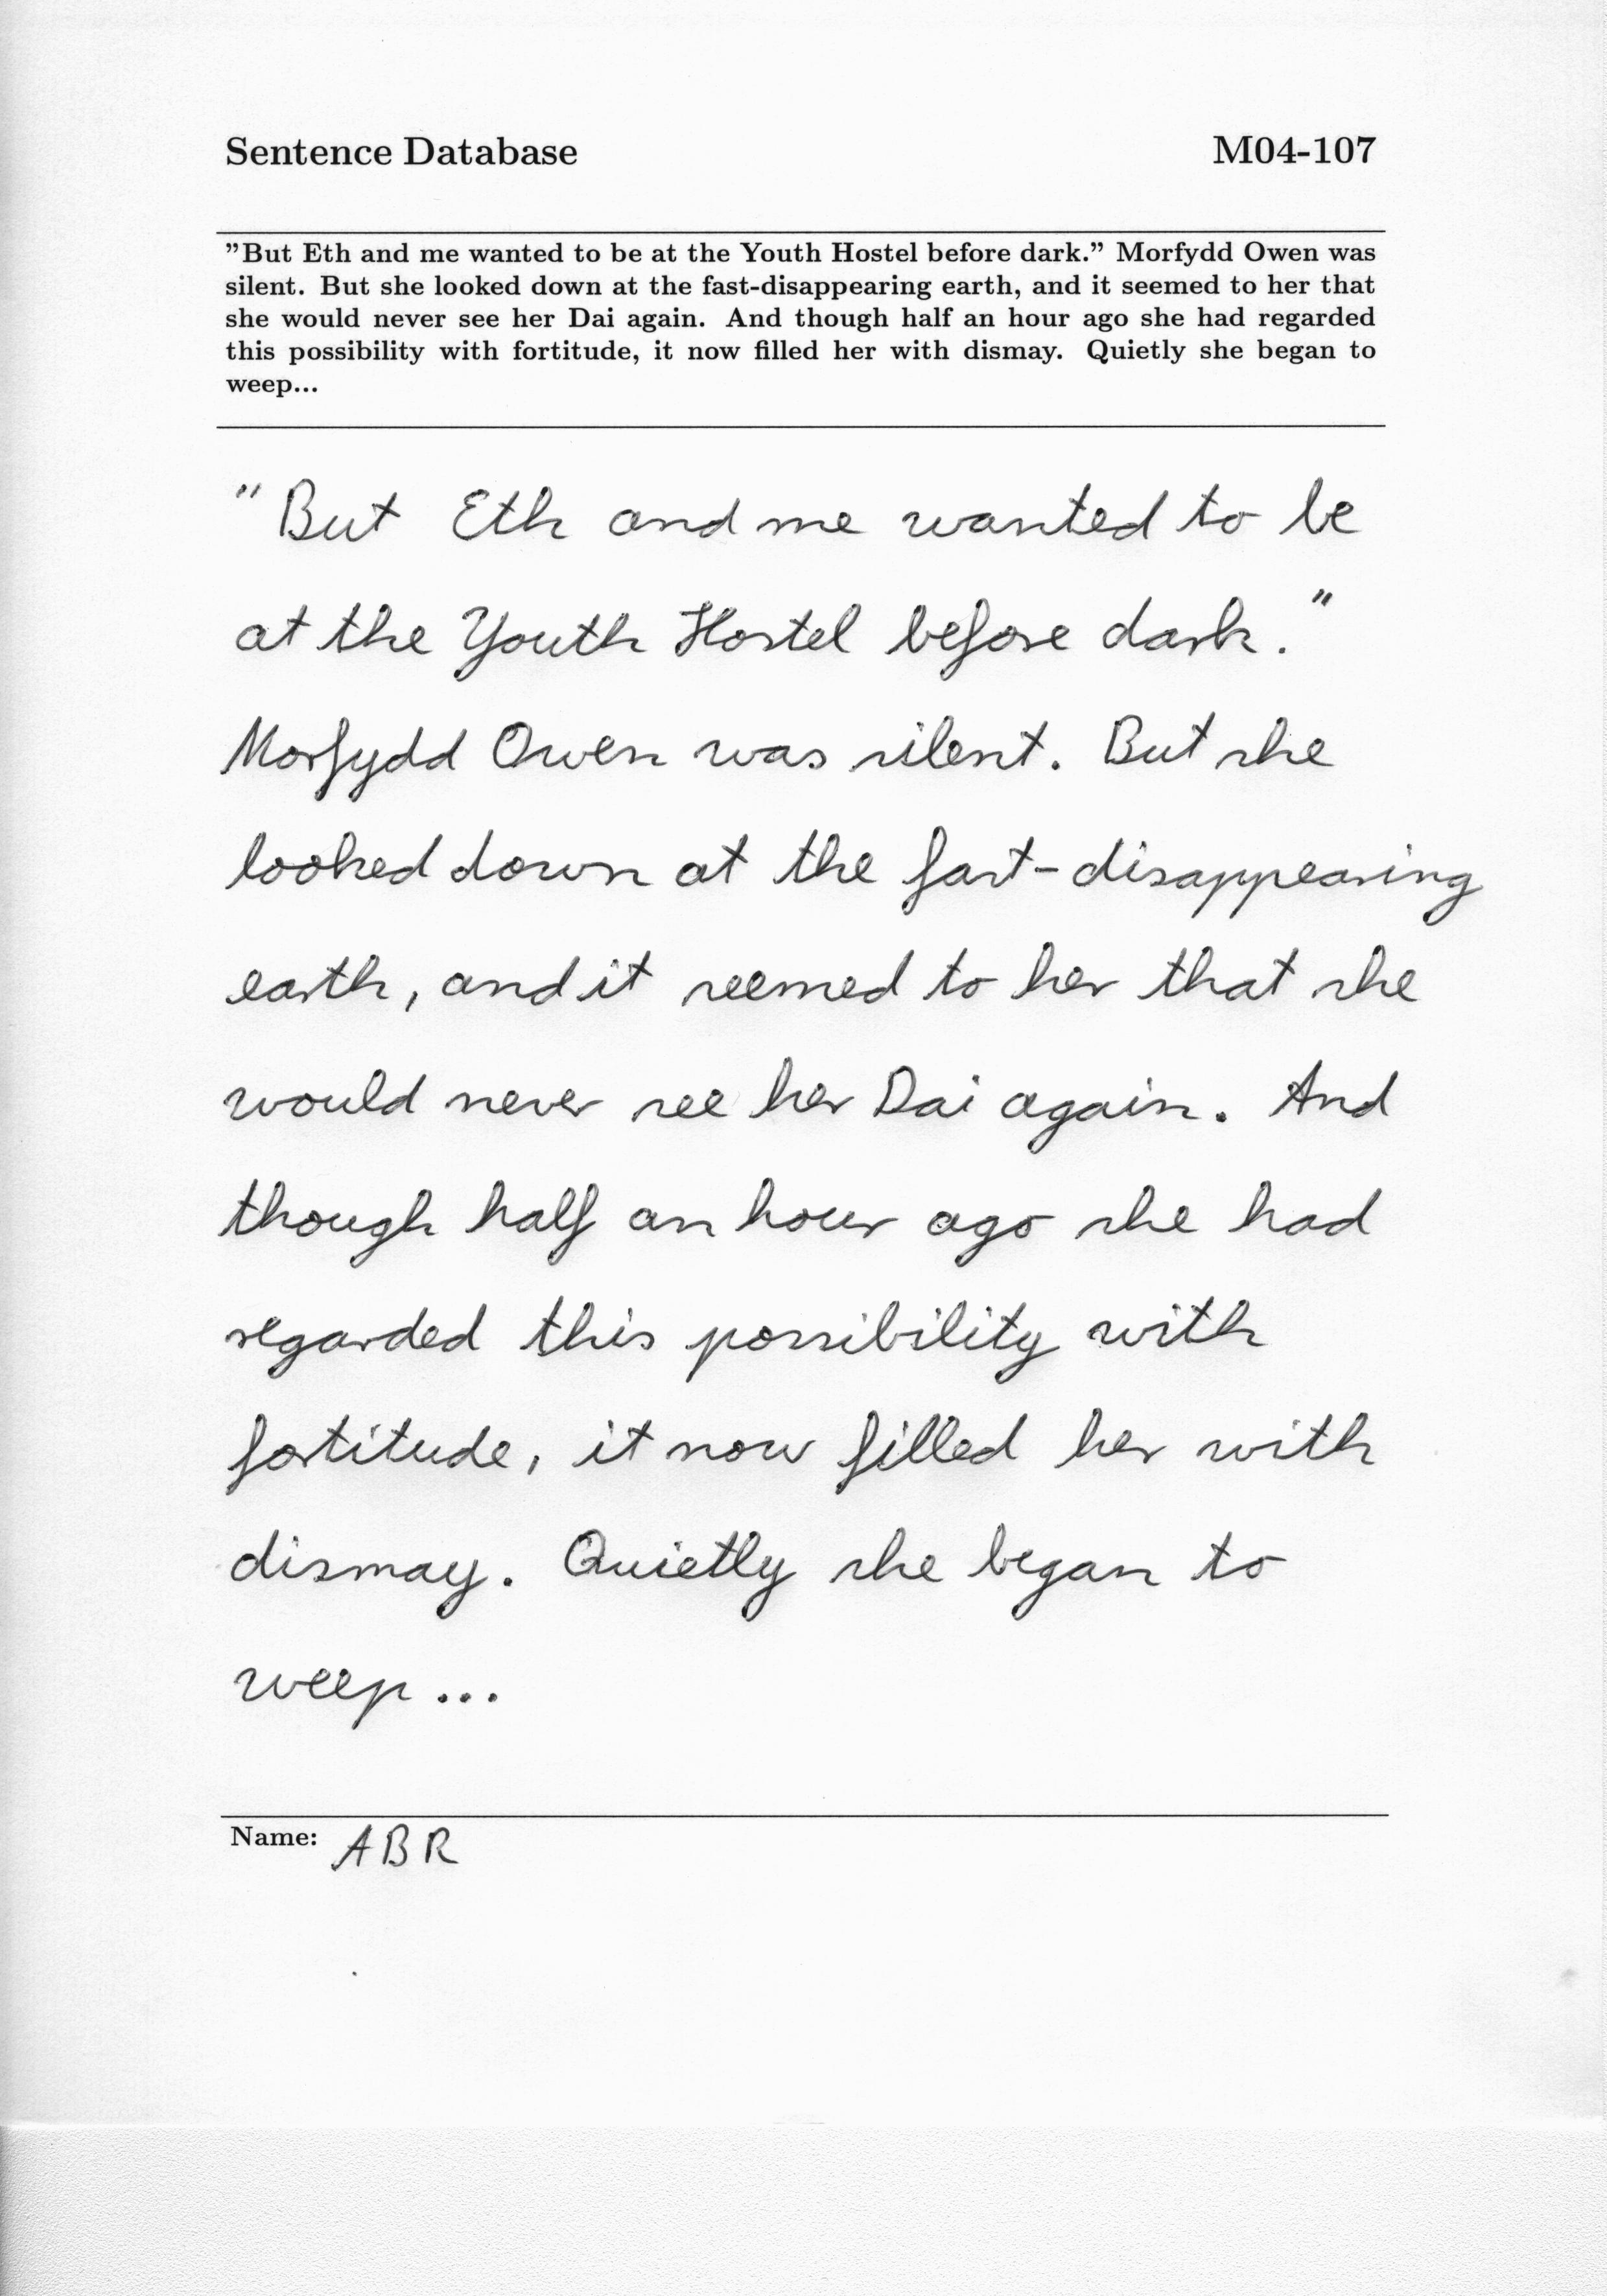 Sentence Database M04-107
”But Eth and me wanted to be at the Youth Hostel before dark.” Morfydd Owen was
silent. But she looked down at the fast-disappearing earth, and it seemed to her that
she would never see her Dai again. And though half an hour ago she had regarded
this possibility with fortitude, it now filled her with dismay. Quietly she began to
weep...
"But Eth and me wanted to be
at the Youth Hostel before dark."
Morfydd Owen was silent. But she
looked down at the fast-disappearing
earth, and it seemed to her that she
would never see her Dai again. And
though half an hour ago she had
regarded this possibility with
fortitude, it now filled her with
dismay. Quietly she began to
weep...
Name: ABR